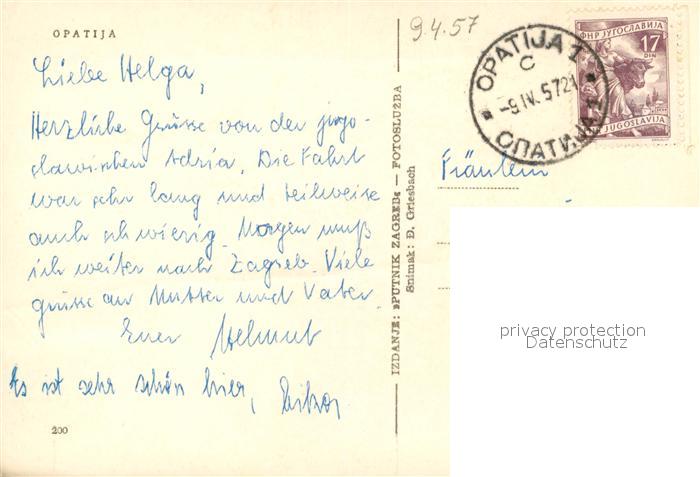 OPATIJA
Liebe Helga,
Herzliche Grüsse von der jugo-
slawischen Adria. Die Fahrt
war sehr lang und teilweise
auch schwierig. Morgen muß
ich weiter nach Zagreb. Viele
grüsse an Mutter und Vater.
Euer Helmut
Es ist sehr schön hier,
200
IZDANJE: »PUTNIK ZAGREB« — FOTOSLUŽBA
Snimak: Đ. Griesbach
9.4.57
OPATIJA 1
C
-9.IV.57 21
ОПАТИЈА 1
ФНР ЈУГОСЛАВИЈА
17
DIN
JUGOSLAVIJA
Fräulein
privacy protection
Datenschutz